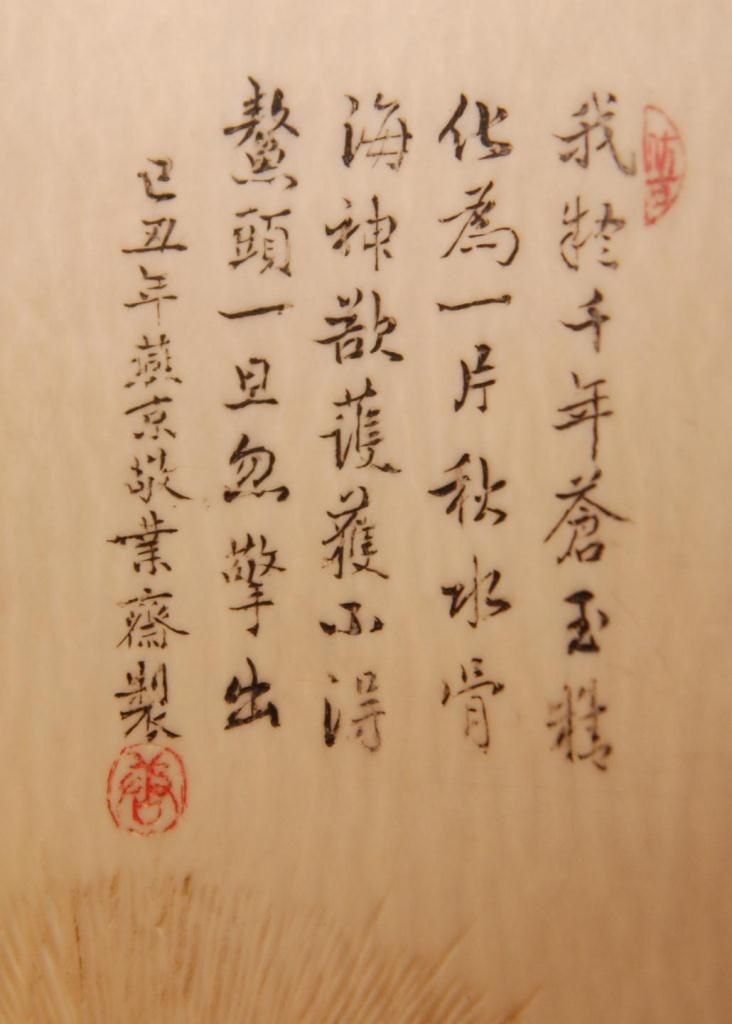 我疑千年蒼玉精
化為一片秋水骨
海神欲護獲不得
鰲頭一旦忽擎出
己丑年燕京敬業齋製